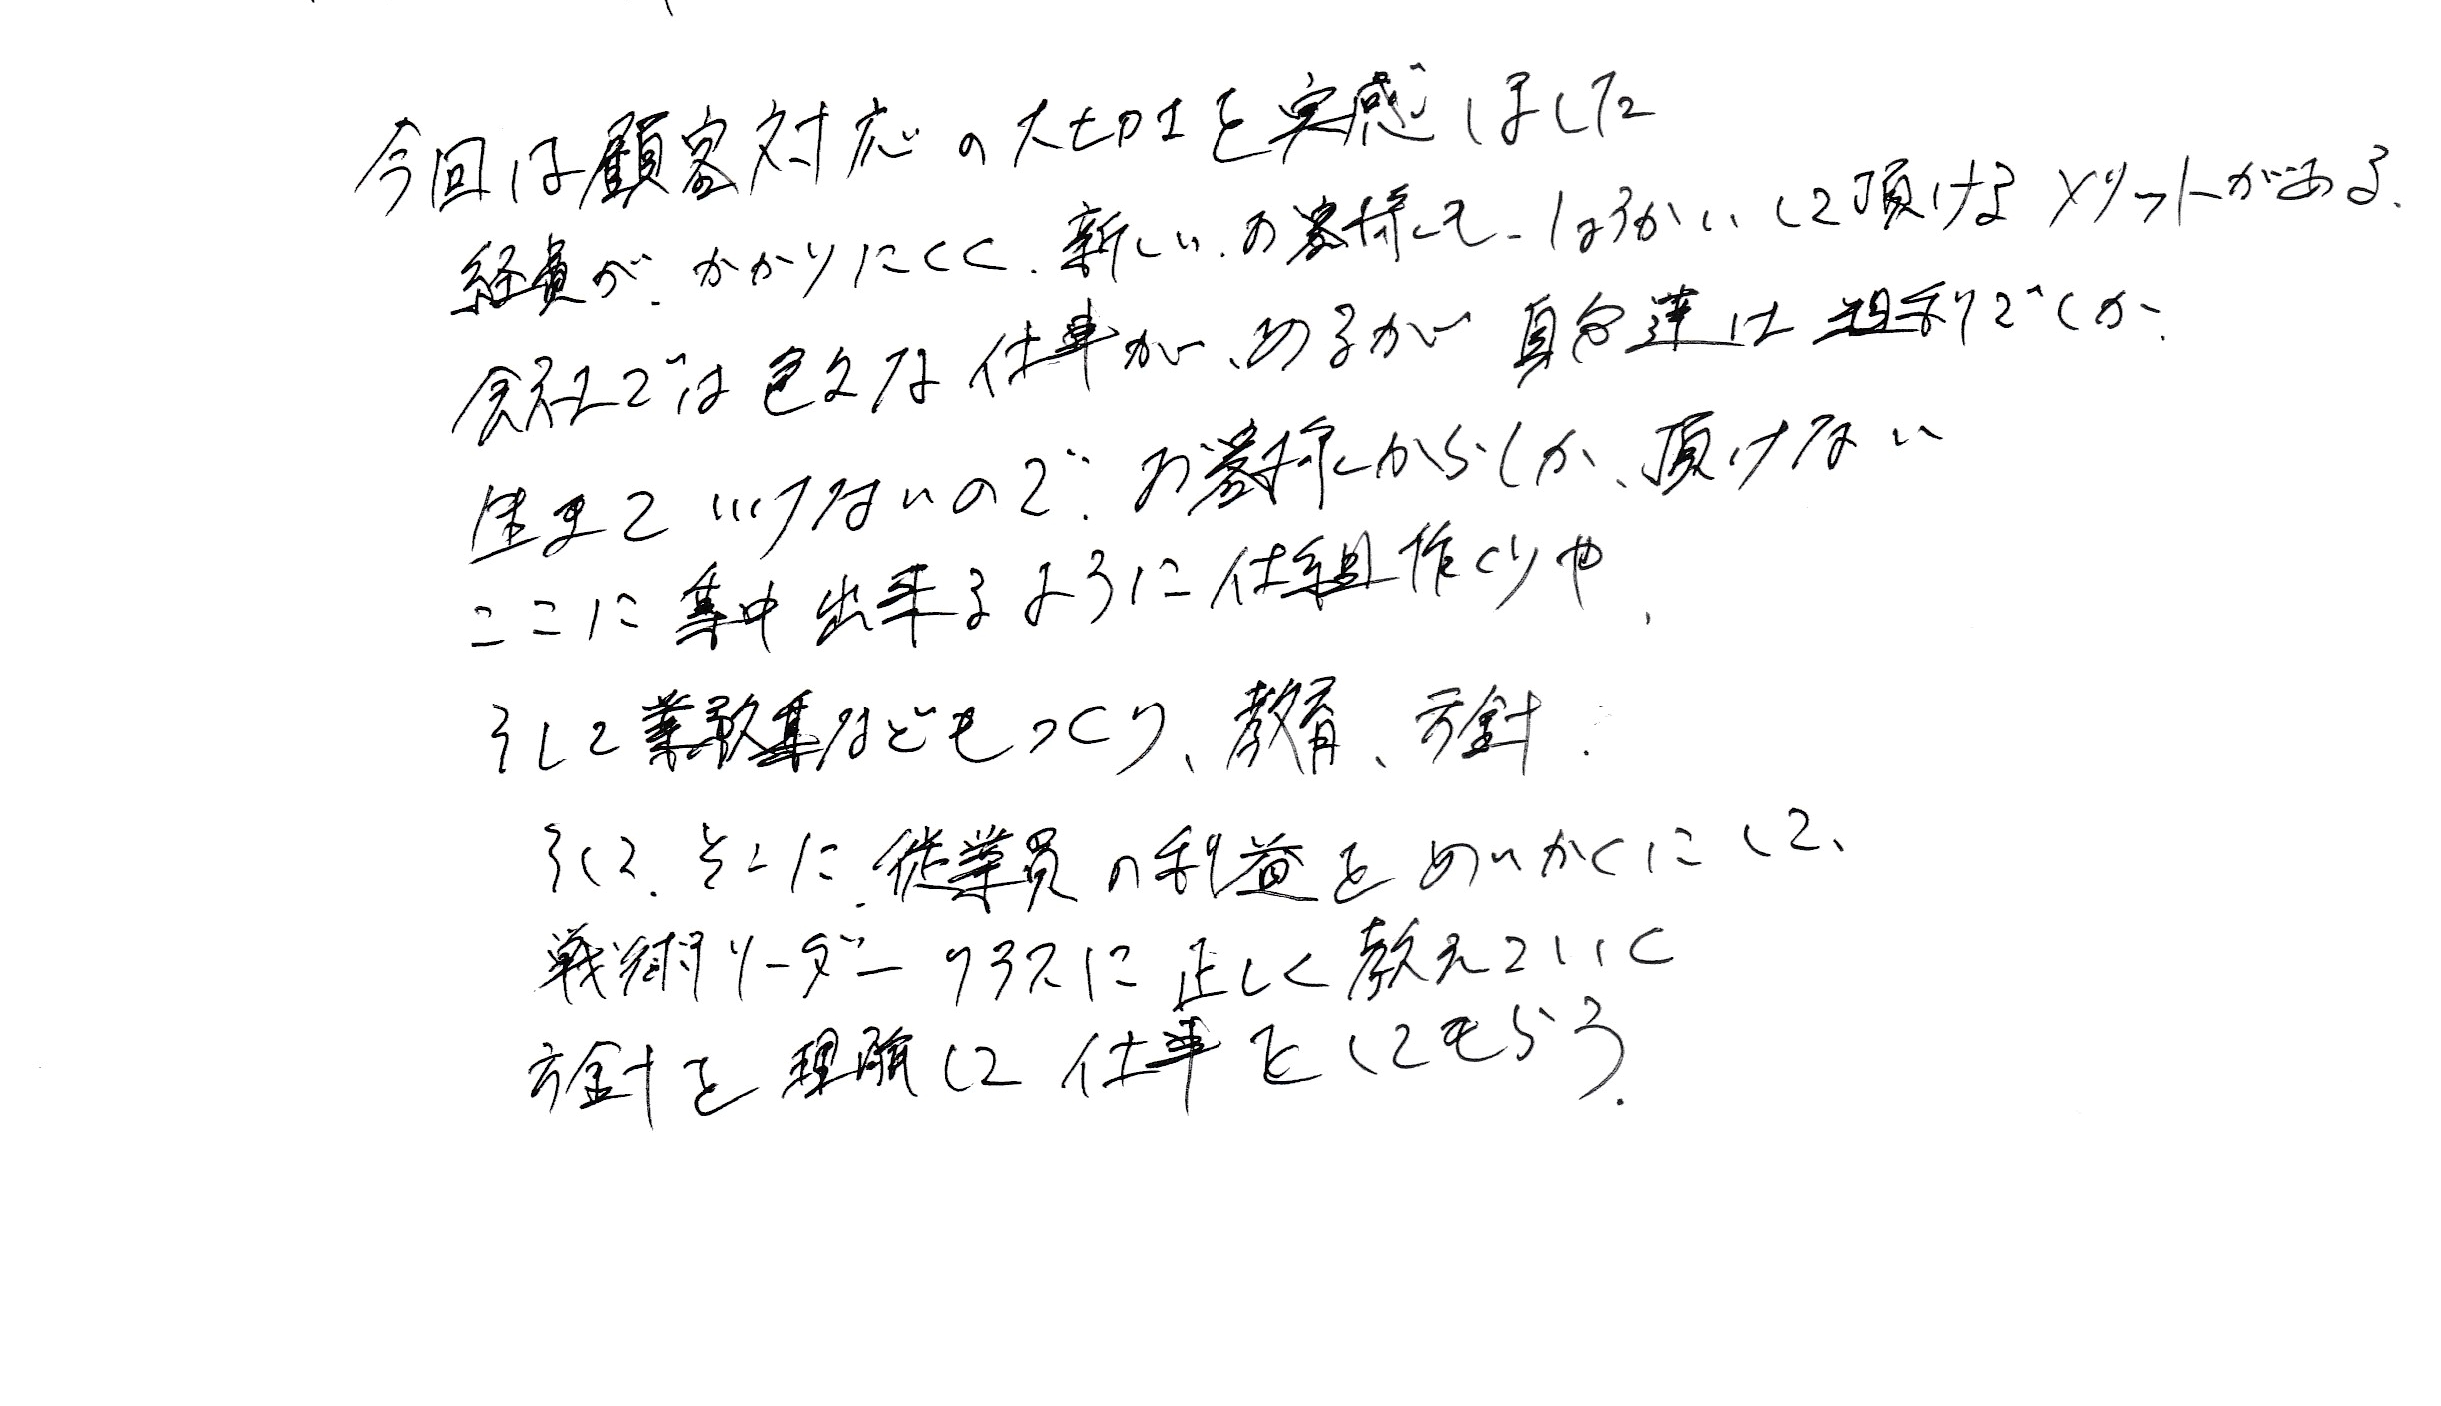 今回は顧客対応の大切さを実感しました
経費が、かかりにくく、新しい、お客様も、しょうかいして頂けるメリットがある、
会社では色々な仕事が、あるが自分達は粗利でしか、
生きていけないので、お客様からしか、頂けない
ここに集中出来るように仕組作くりや、
そして業歌集などもつくり、教育、方針、
そして、そこに、従業員の利益をめいかくにして、
戦術リーダークラスに正しく教えていく
方針を理解して仕事をしてもらう。